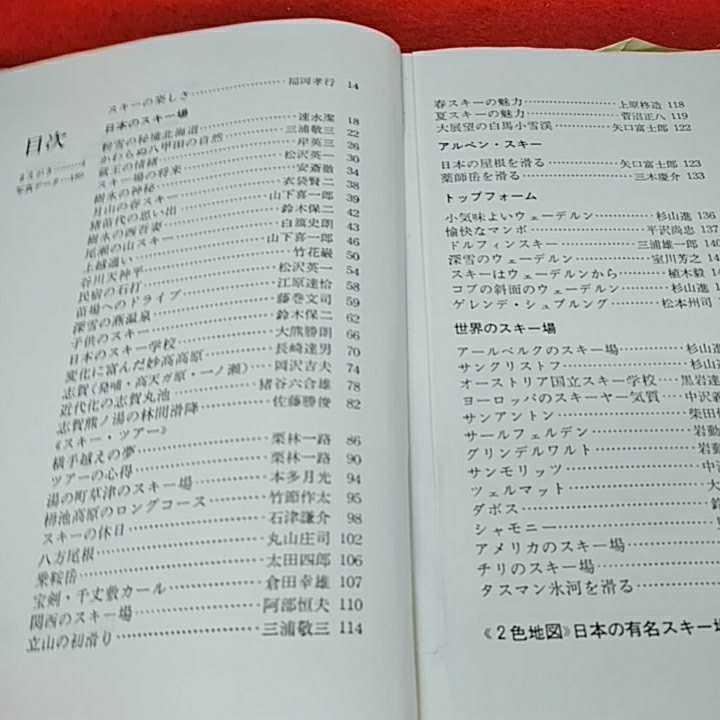 目次
まえがき………4
写真データ…180
スキーの楽しさ………福岡孝行 14
日本のスキー場
粉雪の秘境北海道………速水潔 18
かわらぬ八甲田の自然………三浦敬三 22
蔵王の情緒………岸英三 26
スキー場の将来………松沢英一 30
樹氷の神秘………安斎徹
月山の春スキー………衣袋賢二
猪苗代の思い出………山下喜一郎 39
樹氷の西吾妻………鈴木保二 42
尾瀬の山スキー………白籏史朗 40
上越通い………山下喜一郎 46
谷川天神平………竹花巌 50
民宿の石打………松沢英一 54
苗場へのドライブ………江原達怡 58
深雪の燕温泉………藤巻文司 59
子供のスキー………鈴木保二 62
日本のスキー学校………大熊勝朗 66
変化に富んだ妙高高原………長崎達男 70
志賀（発哺・高天ガ原・一ノ瀬）………岡沢吉夫 74
近代化の志賀丸池………猪谷六合雄 78
志賀熊ノ湯の林間滑降………佐藤勝俊 82
《スキー・ツアー》
横手越えの夢………栗林一路 86
ツアーの心得………栗林一路 90
湯の町草津のスキー場………本多月光 94
栂池高原のロングコース………竹節作太 95
スキーの休日………石津謙介 98
八方尾根………丸山庄司 102
乗鞍岳………太田四郎 106
宝剣・千丈敷カール………倉田幸雄 107
関西のスキー場………阿部恒夫 110
立山の初滑り………三浦敬三 114
春スキーの魅力………上原柊造 118
夏スキーの魅力………菅沼正八 119
大展望の白馬小雪渓………矢口富士郎 122
アルペン・スキー
日本の屋根を滑る………矢口富士郎 123
薬師岳を滑る………三木慶介 133
トップフォーム
小気味よいウェーデルン………杉山進 136
愉快なマンボ………平沢尚忠 137
ドルフィンスキー………三浦雄一郎 140
深雪のウェーデルン………室川芳之
スキーはウェーデルンから………植木毅
コブの斜面のウェーデルン………杉山進
ゲレンデ・シュプルング………松本州司
世界のスキー場
アールベルクのスキー場………杉山
サンクリストフ………杉山
オーストリア国立スキー学校………黒岩達
ヨーロッパのスキーヤー気質………中沢義
サンアントン………柴田
サールフェルデン………岩動
グリンデルワルト………岩動
サンモリッツ………中
ツェルマット………大
ダボス………
シャモニー………
アメリカのスキー場………
チリのスキー場………
タスマン氷河を滑る………
《2色地図》日本の有名スキー場